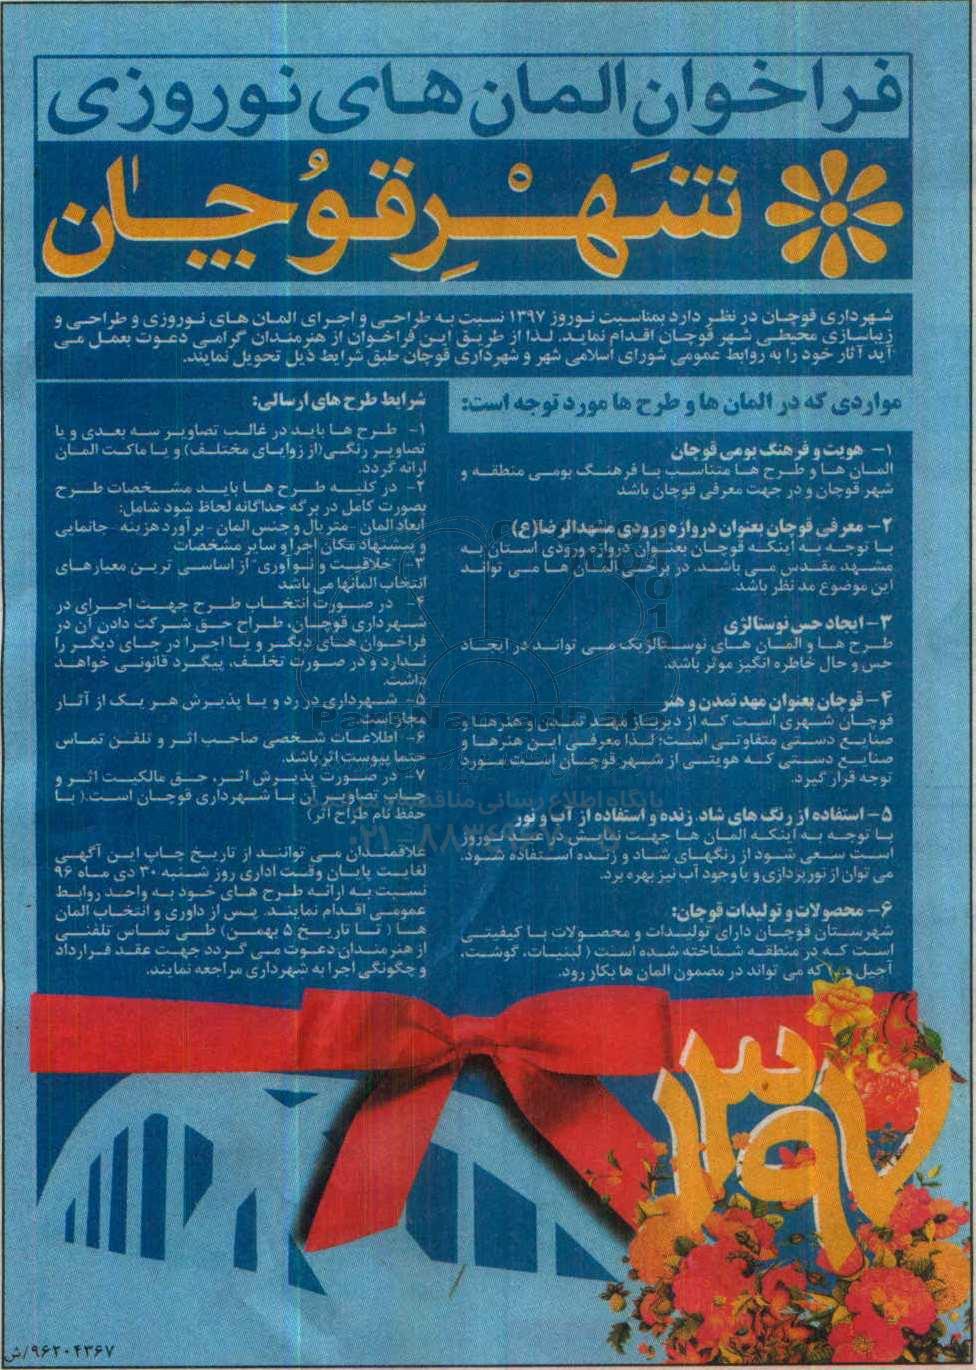 فراخوان المان های نوروزی
شهر قوچان
شهرداری قوچان در نظر دارد بمناسبت نوروز ۱۳۹۷ نسبت به طراحی و اجرای المان های نوروزی و طراحی و
زیباسازی محیطی شهر قوچان اقدام نماید. لذا از طریق این فراخوان از هنرمندان گرامی دعوت بعمل می
آید آثار خود را به روابط عمومی شورای اسلامی شهر و شهرداری قوچان طبق شرایط ذیل تحویل نمایند.
مواردی که در المان ها و طرح ها مورد توجه است:
۱- هویت و فرهنگ بومی قوچان
المان ها و طرح ها متناسب با فرهنگ بومی منطقه و
شهر قوچان و در جهت معرفی قوچان باشد
۲- معرفی قوچان بعنوان دروازه ورودی مشهدالرضا(ع)
با توجه به اینکه قوچان بعنوان دروازه ورودی استان به
مشهد مقدس می باشد. در طراحی المان ها می تواند
این موضوع مد نظر باشد.
۳- ایجاد حس نوستالژی
طرح ها و المان های نوستالژیک می تواند در ایجاد
حس و حال خاطره انگیز موثر باشد.
۴- قوچان بعنوان مهد تمدن و هنر
قوچان شهری است که از دیرباز مهد تمدن و هنرها و
صنایع دستی متفاوتی است؛ لذا معرفی این هنرها و
صنایع دستی که هویتی از شهر قوچان است مورد
توجه قرار گیرد.
۵- استفاده از رنگ های شاد، زنده و استفاده از آب و نور
با توجه به اینکه المان ها جهت نمایش در نوروز
است سعی شود از رنگهای شاد و زنده استفاده شود.
می توان از نورپردازی و یا وجود آب نیز بهره برد.
۶- محصولات و تولیدات قوچان:
شهرستان قوچان دارای تولیدات و محصولات با کیفیتی
است که در منطقه شناخته شده است ( لبنیات، گوشت،
آجیل و...) که می تواند در مضمون المان ها بکار رود.
شرایط طرح های ارسالی:
۱- طرح ها باید در غالب تصاویر سه بعدی و یا
تصاویر رنگی(از زوایای مختلف) و یا ماکت المان
ارائه گردد.
۲- در کلیه طرح ها باید مشخصات طرح
بصورت کامل در برگه جداگانه لحاظ شود شامل:
ابعاد المان - متریال و جنس المان - برآورد هزینه - جانمایی
و پیشنهاد مکان اجرا و سایر مشخصات
۳- "خلاقیت و نوآوری" از اساسی ترین معیارهای
انتخاب المانها می باشد
۴- در صورت انتخاب طرح جهت اجرای در
شهرداری قوچان، طراح حق شرکت دادن آن در
فراخوان های دیگر و یا اجرا در جای دیگر را
ندارد و در صورت تخلف، پیگرد قانونی خواهد
داشت.
۵- شهرداری در رد و یا پذیرش هر یک از آثار
مجاز است
۶- اطلاعات شخصی صاحب اثر و تلفن تماس
حتما پیوست اثر باشد.
۷- در صورت پذیرش اثر، حق مالکیت اثر و
چاپ تصاویر آن با شهرداری قوچان است.( با
حفظ نام طراح اثر)
علاقمندان می توانند از تاریخ چاپ این آگهی
لغایت پایان وقت اداری روز شنبه ۳۰ دی ماه ۹۶
نسبت به ارائه طرح های خود به واحد روابط
عمومی اقدام نمایند. پس از داوری و انتخاب المان
ها ( تا تاریخ ۵ بهمن) طی تماس تلفنی
از هنرمندان دعوت می گردد جهت عقد قرارداد
و چگونگی اجرا به شهرداری مراجعه نمایند.
ParsNamadData
پایگاه اطلاع رسانی مناقصه
۰۲۱-۸۸۳۴۹۶۷۰-۵
۱۳۹۷
۹۶۲۰۴۳۶۷/ش